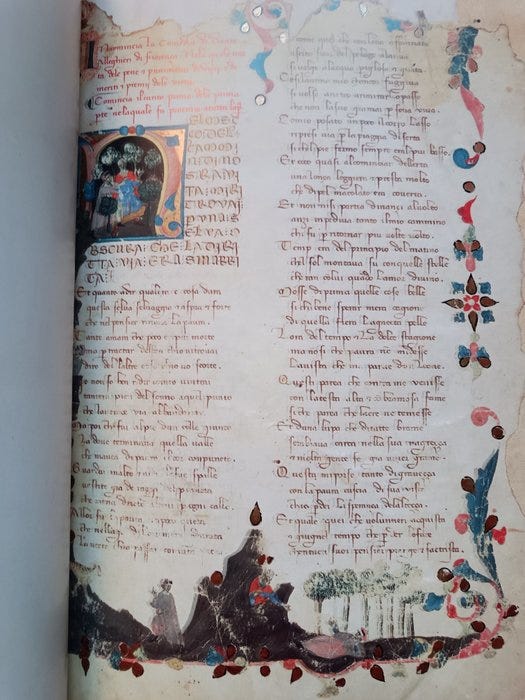 Incomincia la Comedia di Dante
Alleghieri di fiorença Nela quale tra
ta dele pene e punimenti de vitii e de
meriti e premij dele virtu
Comincia il canto primo della prima
pte nelaquale fa proemio a tutta
TA: MI RI
TROVAI
P UNA S
ELVA O
BSCURA: CHE LA DIRI
TTA: VIA: ERA SMARRI
TA:
Et quanto a dir qual era e cosa dura
questa selva selvaggia e aspra e forte
che nel pensier rinova la paura
Tante amara che poco e piu morte
ma p tractar del ben chio vi trovai
diro dell altre cose
o non so ben ridir
tantera pien del sonno a quel punto
che la verace via abbandonai
Ma poi chi fui al pie dun colle
La dove terminava quella valle
che mavea di paura il cor compunto
Guardai malto e vidi le sue spalle
vestite gia de raggi del pianeta
che mena dricto altrui p ogni calle
Allor fu la paura un poco queta
che nel lago del cor mera durata
La nocte chio passai con tanta pieta
E come quei che con lena affannata
uscito fuor del pelago alariva
si volge alacqua pigliosa e guata
Cosi lanimo mio cancor fuggiva
si volse a retro a rimirar lo passo
che non lascio giamai p sona viva
Como posato un poco il corpo lasso
ripresi via p la piaggia diserta
si chel pie fermo sempre era l piu basso
Et ecco quasi al cominciar dellerta
una lonça leggiera e presta molto
che di pel macolato era coverta
Et non mi si partia dinançi al volto
anzi impediva tanto lmio cammino
chi fu p ritornar piu volte volto
Temp era del principio del matino
el sol montava su con quelle stelle
cheran con lui quando lamor divino
Mosse di prima quelle cose belle
si cha bene sperar mera cagione
di quella fiera la gaetta pelle
Lora del tempo e la dolce stagione
ma no si che paura no mi desse
La vista che m apparve dun leone
Questi parea che contra me venisse
con la testa alta e co rabiosa fame
si che parea che laere ne temesse
Et duna lupa che di tutte brame
sembiava carca nella sua magreça
e molte gente fe gia viver grame
Questa mi porse tanto di graveçça
con la paura cuscia di sua vista
chio pdei la sperança dellalteça
Et quale quei che volunner acquista
e giugnel tempo che p der lo face
che n tucti suoi pensier piange e sactrista